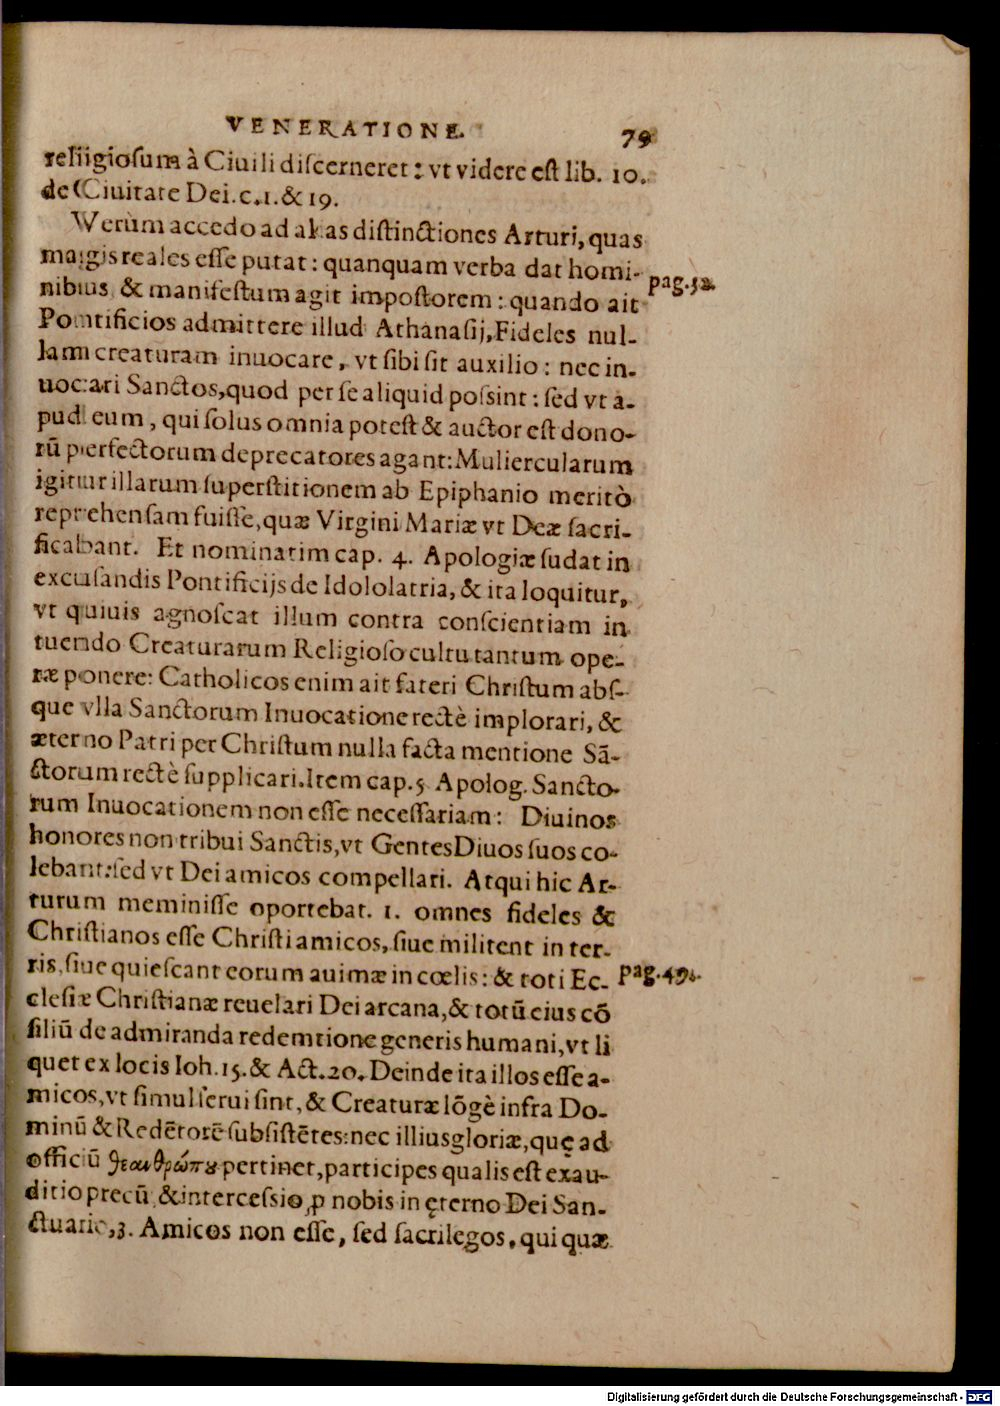 VENERATIONE. 79
religiosum à Ciuili discerneret: vt videre est lib. 10.
de Ciuitate Dei. c. 1. & 19.
Verùm accedo ad alias distinctiones Arturi, quas
magis reales esse putat: quanquam verba dat homi-
pag. 52.
nibus & manifestum agit impostorem: quando ait
Pontificios admittere illud Athanasij, Fideles nul-
lam creaturam inuocare, vt sibi sit auxilio: nec in-
uocari Sanctos, quod per se aliquid possint: sed vt a-
pud eum, qui solus omnia potest & auctor est dono-
rū perfectorum deprecatores agant: Muliercularum
igitur illarum superstitionem ab Epiphanio meritò
reprehensam fuisse, quæ Virgini Mariæ vt Deæ sacri-
ficabant. Et nominatim cap. 4. Apologiæ sudat in
excusandis Pontificijs de Idololatria, & ita loquitur,
vt quiuis agnoscat illum contra conscientiam in
tuendo Creaturarum Religioso cultu tantum ope-
ræ ponere: Catholicos enim ait fateri Christum abs-
que vlla Sanctorum Inuocatione rectè implorari, &
æterno Patri per Christum nulla facta mentione Sā-
ctorum rectè supplicari. Item cap. 5 Apolog. Sancto-
rum Inuocationem non esse necessariam: Diuinos
honores non tribui Sanctis, vt Gentes Diuos suos co-
lebant: sed vt Dei amicos compellari. Atqui hic Ar-
turum meminisse oportebat. 1. omnes fideles &
Christianos esse Christi amicos, siue militent in ter-
ris, siue quiescant eorum auimæ in cœlis: & toti Ec-
pag. 49.
clesiæ Christianæ reuelari Dei arcana, & totū eius cō
siliū de admiranda redemtione generis humani, vt li
quet ex locis Ioh. 15. & Act. 20. Deinde ita illos esse a-
micos, vt simul serui sint, & Creaturæ lōgè infra Do-
minū & Redētorē subsistētes: nec illius gloriæ, quę ad
officiū θεανθρώπου pertinet, participes qualis est exau-
ditio precū & intercessio ꝓ nobis in ęterno Dei San-
ctuario, 3. Amicos non esse, sed sacrilegos, qui quæ
Digitalisierung gefördert durch die Deutsche Forschungsgemeinschaft - DFG